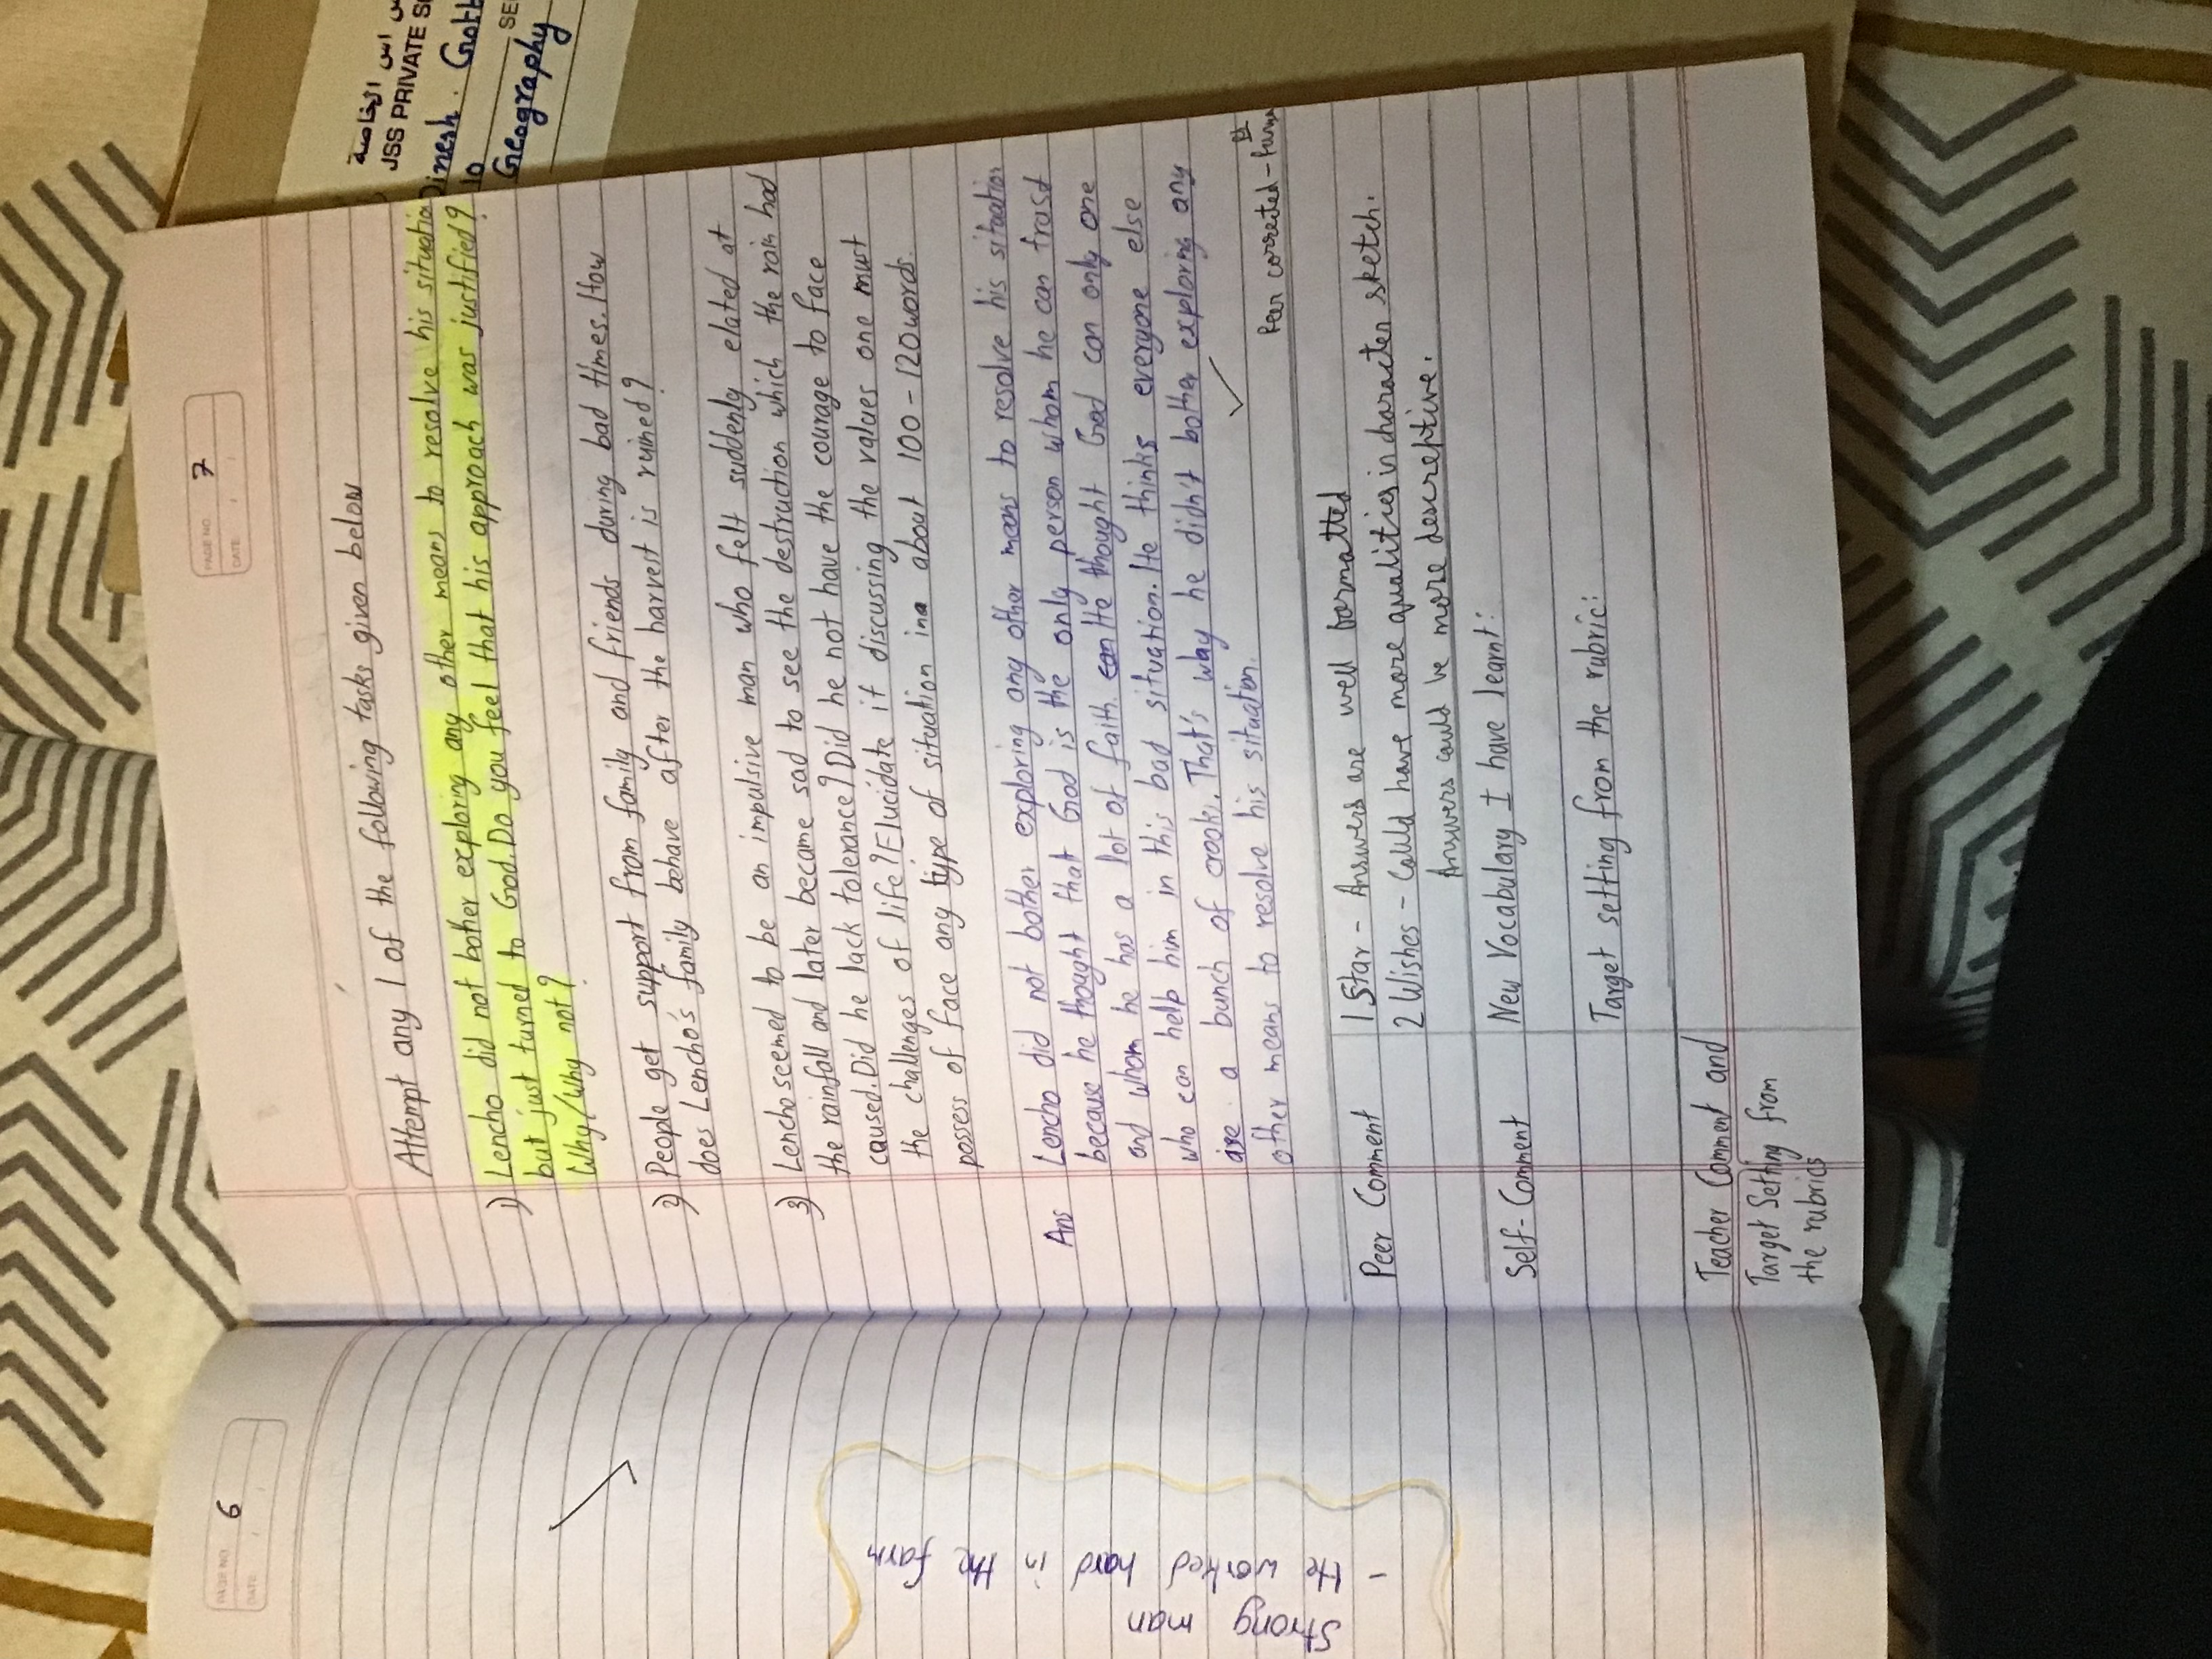 PAGE NO. 6
DATE / /
Strong man
- He worked hard in the farm
PAGE NO. 7
DATE / /
Attempt any 1 of the following tasks given below
1) Lencho did not bother exploring any other means to resolve his situation
but just turned to God. Do you feel that his approach was justified?
Why/Why not?
2) People get support from family and friends during bad times. How
does Lencho's family behave after the harvest is ruined?
3) Lencho seemed to be an impulsive man who felt suddenly elated at
the rainfall and later became sad to see the destruction which the rain had
caused. Did he lack tolerance? Did he not have the courage to face
the challenges of life? Elucidate it discussing the values one must
possess of face any type of situation in about 100-120 words.
Ans Lencho did not bother exploring any other means to resolve his situation
because he thought that God is the only person whom he can trust
and whom he has a lot of faith. He thought God can only one
who can help him in this bad situation. He thinks everyone else
are a bunch of crooks. That's why he didn't bother exploring any
other means to resolve his situation.
Peer corrected -
Peer Comment 1 Star - Answers are well formatted
2 Wishes - Could have more qualities in character sketch.
Answers could be more descreptive.
Self-Comment New Vocabulary I have learnt:
Target setting from the rubric:
Teacher Comment and
Target Setting from
the rubrics
س اس الخاصة
JSS PRIVATE S
Dinesh. Gott
10
SE
Geography